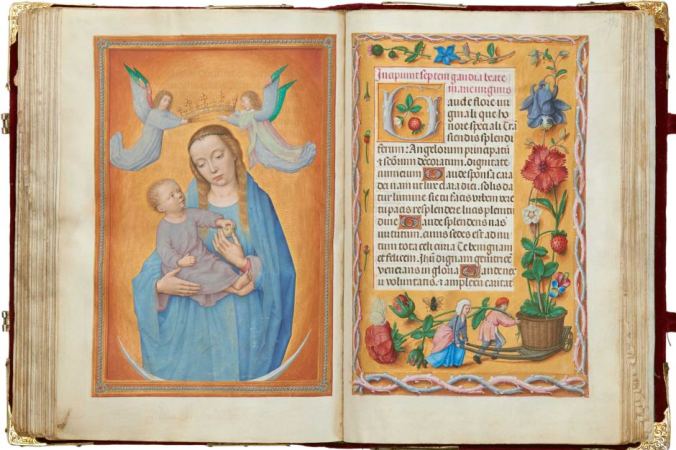 Incipiunt septem gaudia beate
marie virginis
Gaude flore vir
ginali que ho
nore speciali Tra
scendis splendi
ferum: Angelorum principatum
& scõrum decoratum, dignitate
numerum Gaude sponsa cara
dei nam ut luxe clara diei. solis da
tur lumine sic tu facis orbem vere
tu pacis resplendere lucis plenitu
dine Gaude splendens vas
virtutum, cuius sedes est ad nu
tum tota celi curia Te benignam
et felicem. Ihũ dignam genitricẽ
venerans in gloria Gaude nex
u voluntatis, & amplexu caritat